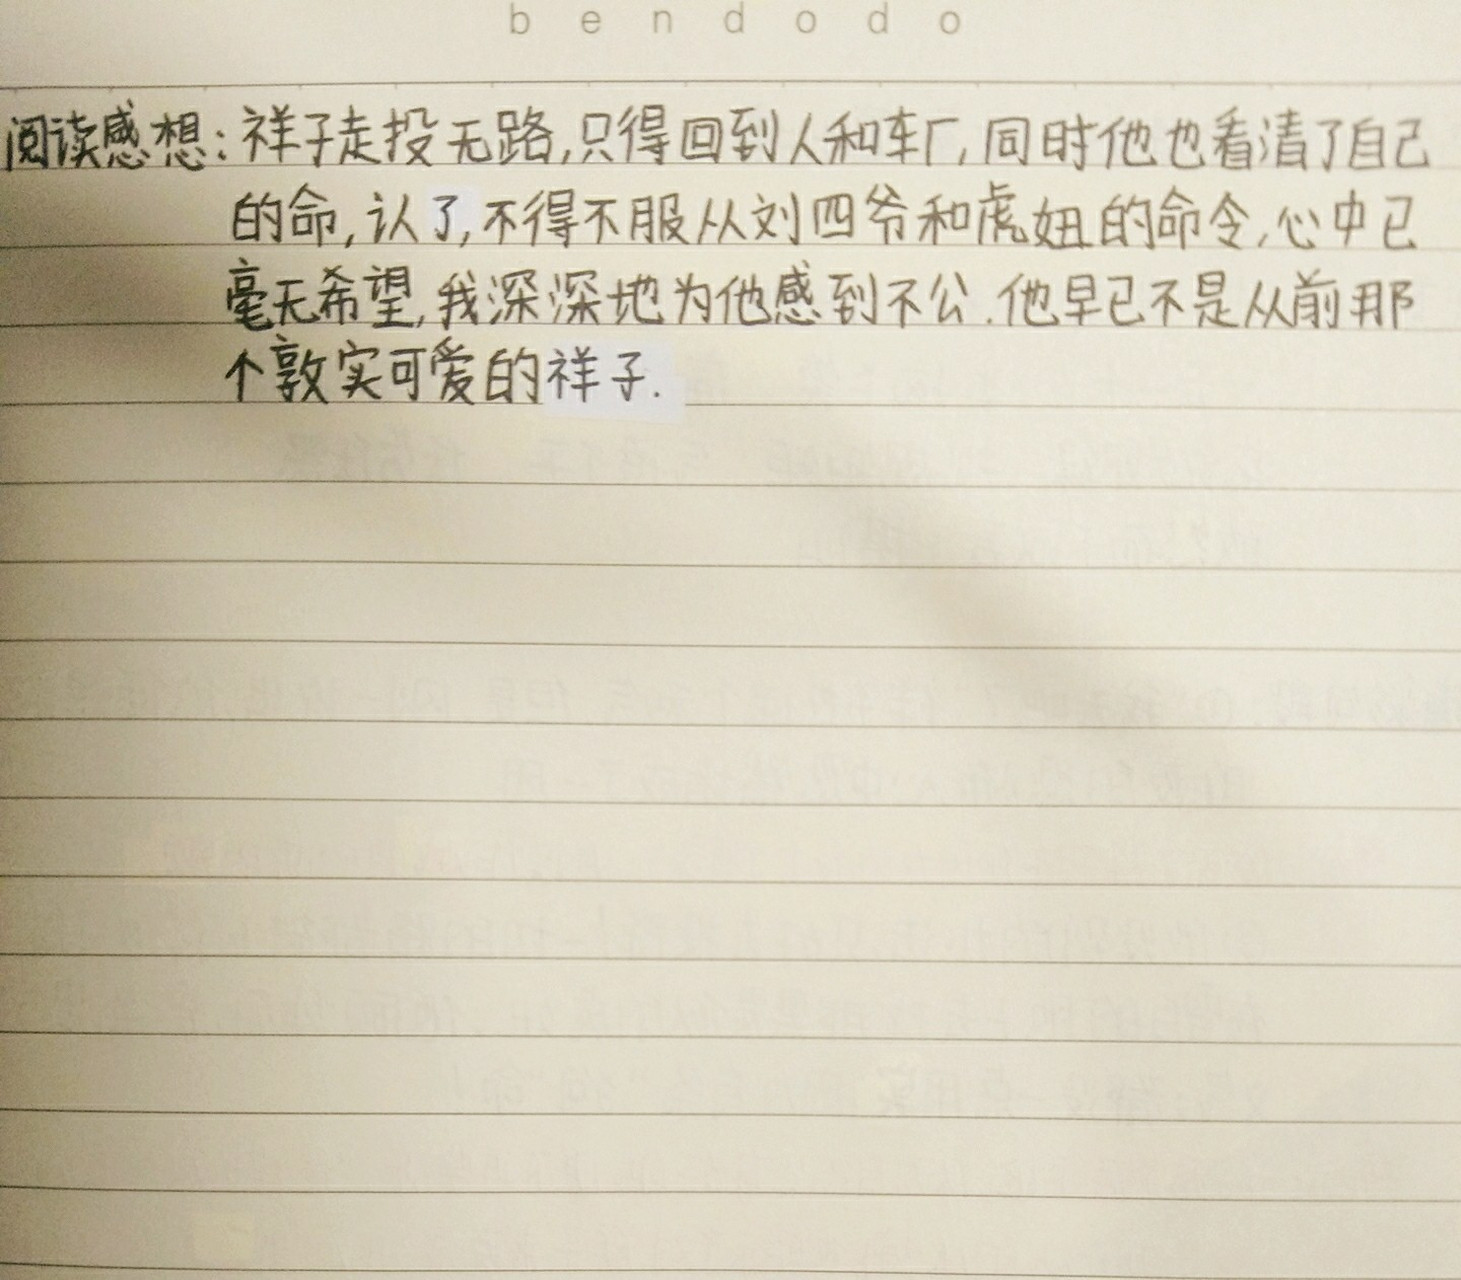 bendodo
阅读感想:祥子走投无路,只得回到人和车厂,同时他也看清了自己
的命,认了,不得不服从刘四爷和虎妞的命令,心中已
毫无希望,我深深地为他感到不公.他早已不是从前那
个敦实可爱的祥子.